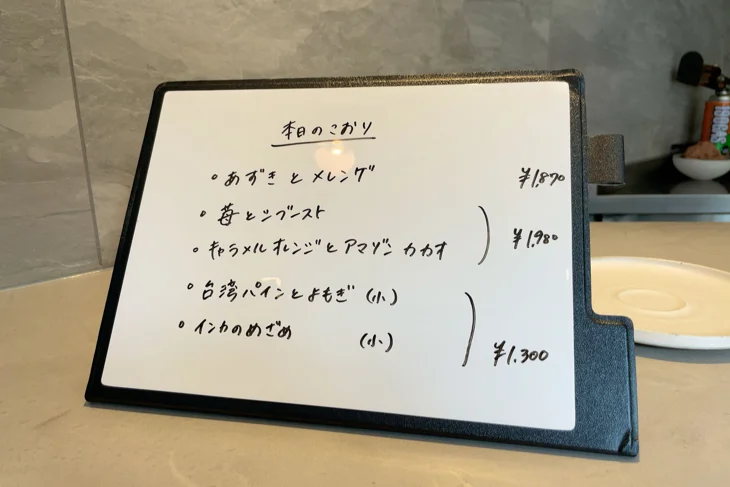 本日のこおり
• あずきとメレンゲ ¥1,870
• 苺とシブースト
• キャラメルオレンジとアマゾンカカオ ¥1,980
• 台湾パインとよもぎ (小)
• インカのめざめ (小)
¥1,300